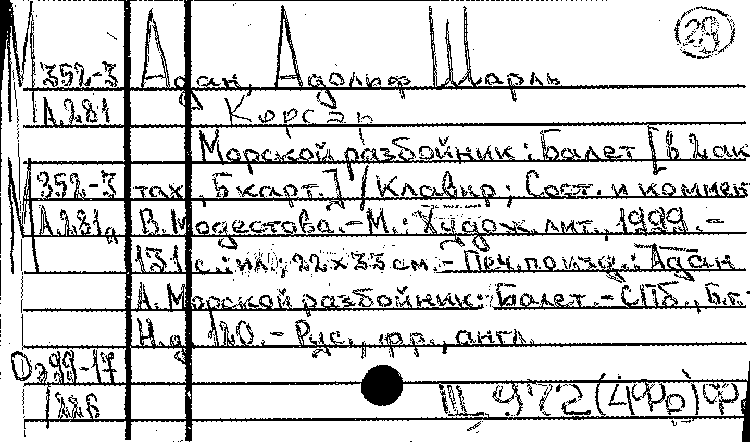 29
М 352-3 Адан, Адольф Шарль
А.281 Корсар
Морской разбойник: Балет [в 2 ак
М 352-3 тах, 5 карт.] / Клавир; Сост. и коммен
А.281а В. Модестова. - М.: Худож. лит., 1999. -
131 с.: ил.; 22х33 см. - Печ. по изд.: Адан
А. Морской разбойник: Балет. - СПб., Б.г.
Н.д. 120. - Рус., фр., англ.
Оэ99-17
/226 Щ 972(4Фр)